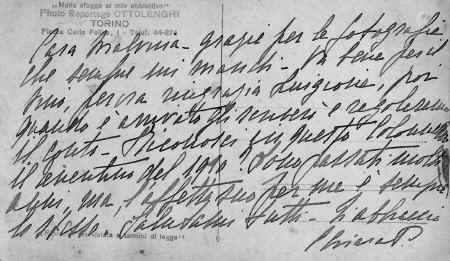 „Nulla sfugge al mio obbiettivo"
Photo Reportage OTTOLENGHI
TORINO
Piazza Carlo Felice, 1 - Telef. 44-874
Cara Malvina - grazie per le fotografie
che sempre mi mandi - Va bene per il
vino, per ora ringrazia Luigione, poi
quando è arrivato di scriverà e regoleremo
il conto - Riconosci in questo Colombella
il ventino del 1919? Sono passati molti
anni, ma, l'affetto suo per me è sempre
lo stesso. Salutami tutti - L'abbraccia
Chiara
a termini di legge